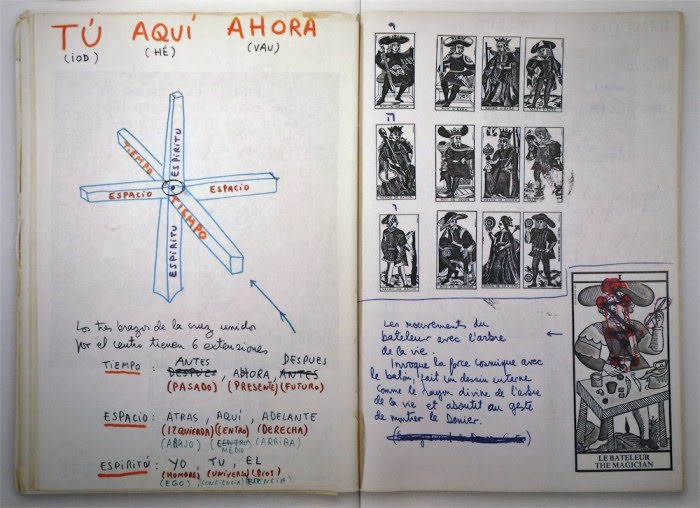 TÚ AQUÍ AHORA
(IOD) (HÉ) (VAU)
ESPIRITU
TIEMPO
ESPACIO ESPACIO
TIEMPO
ESPIRITU
Los tres brazos de la cruz unido
por el centro tienen 6 extensiones
ANTES DESPUES
TIEMPO : DESPUES , AHORA , ANTES
(PASADO) (PRESENTE) (FUTURO)
ESPACIO : ATRAS , AQUÍ , ADELANTE
(IZQUIERDA) (CENTRO) (DERECHA)
(ABAJO) (CENTRO) (ARRIBA)
MEDIO
ESPIRITÚ : YO , TU , EL
(HOMBRE) (UNIVERSO) (DIOS)
(EGO) , (CONCIENCIA) ESENCIA)
י
ה
ו
Les mouvements du
bateleur avec l'arbre
de la vie.
Invoque la force cosmique avec
le batôn, fait un dessin interne
comme le rayon divine de l'arbre
de la vie et aboutit au geste
de montrer le Denier.
I
LE BATELEUR
THE MAGICIAN